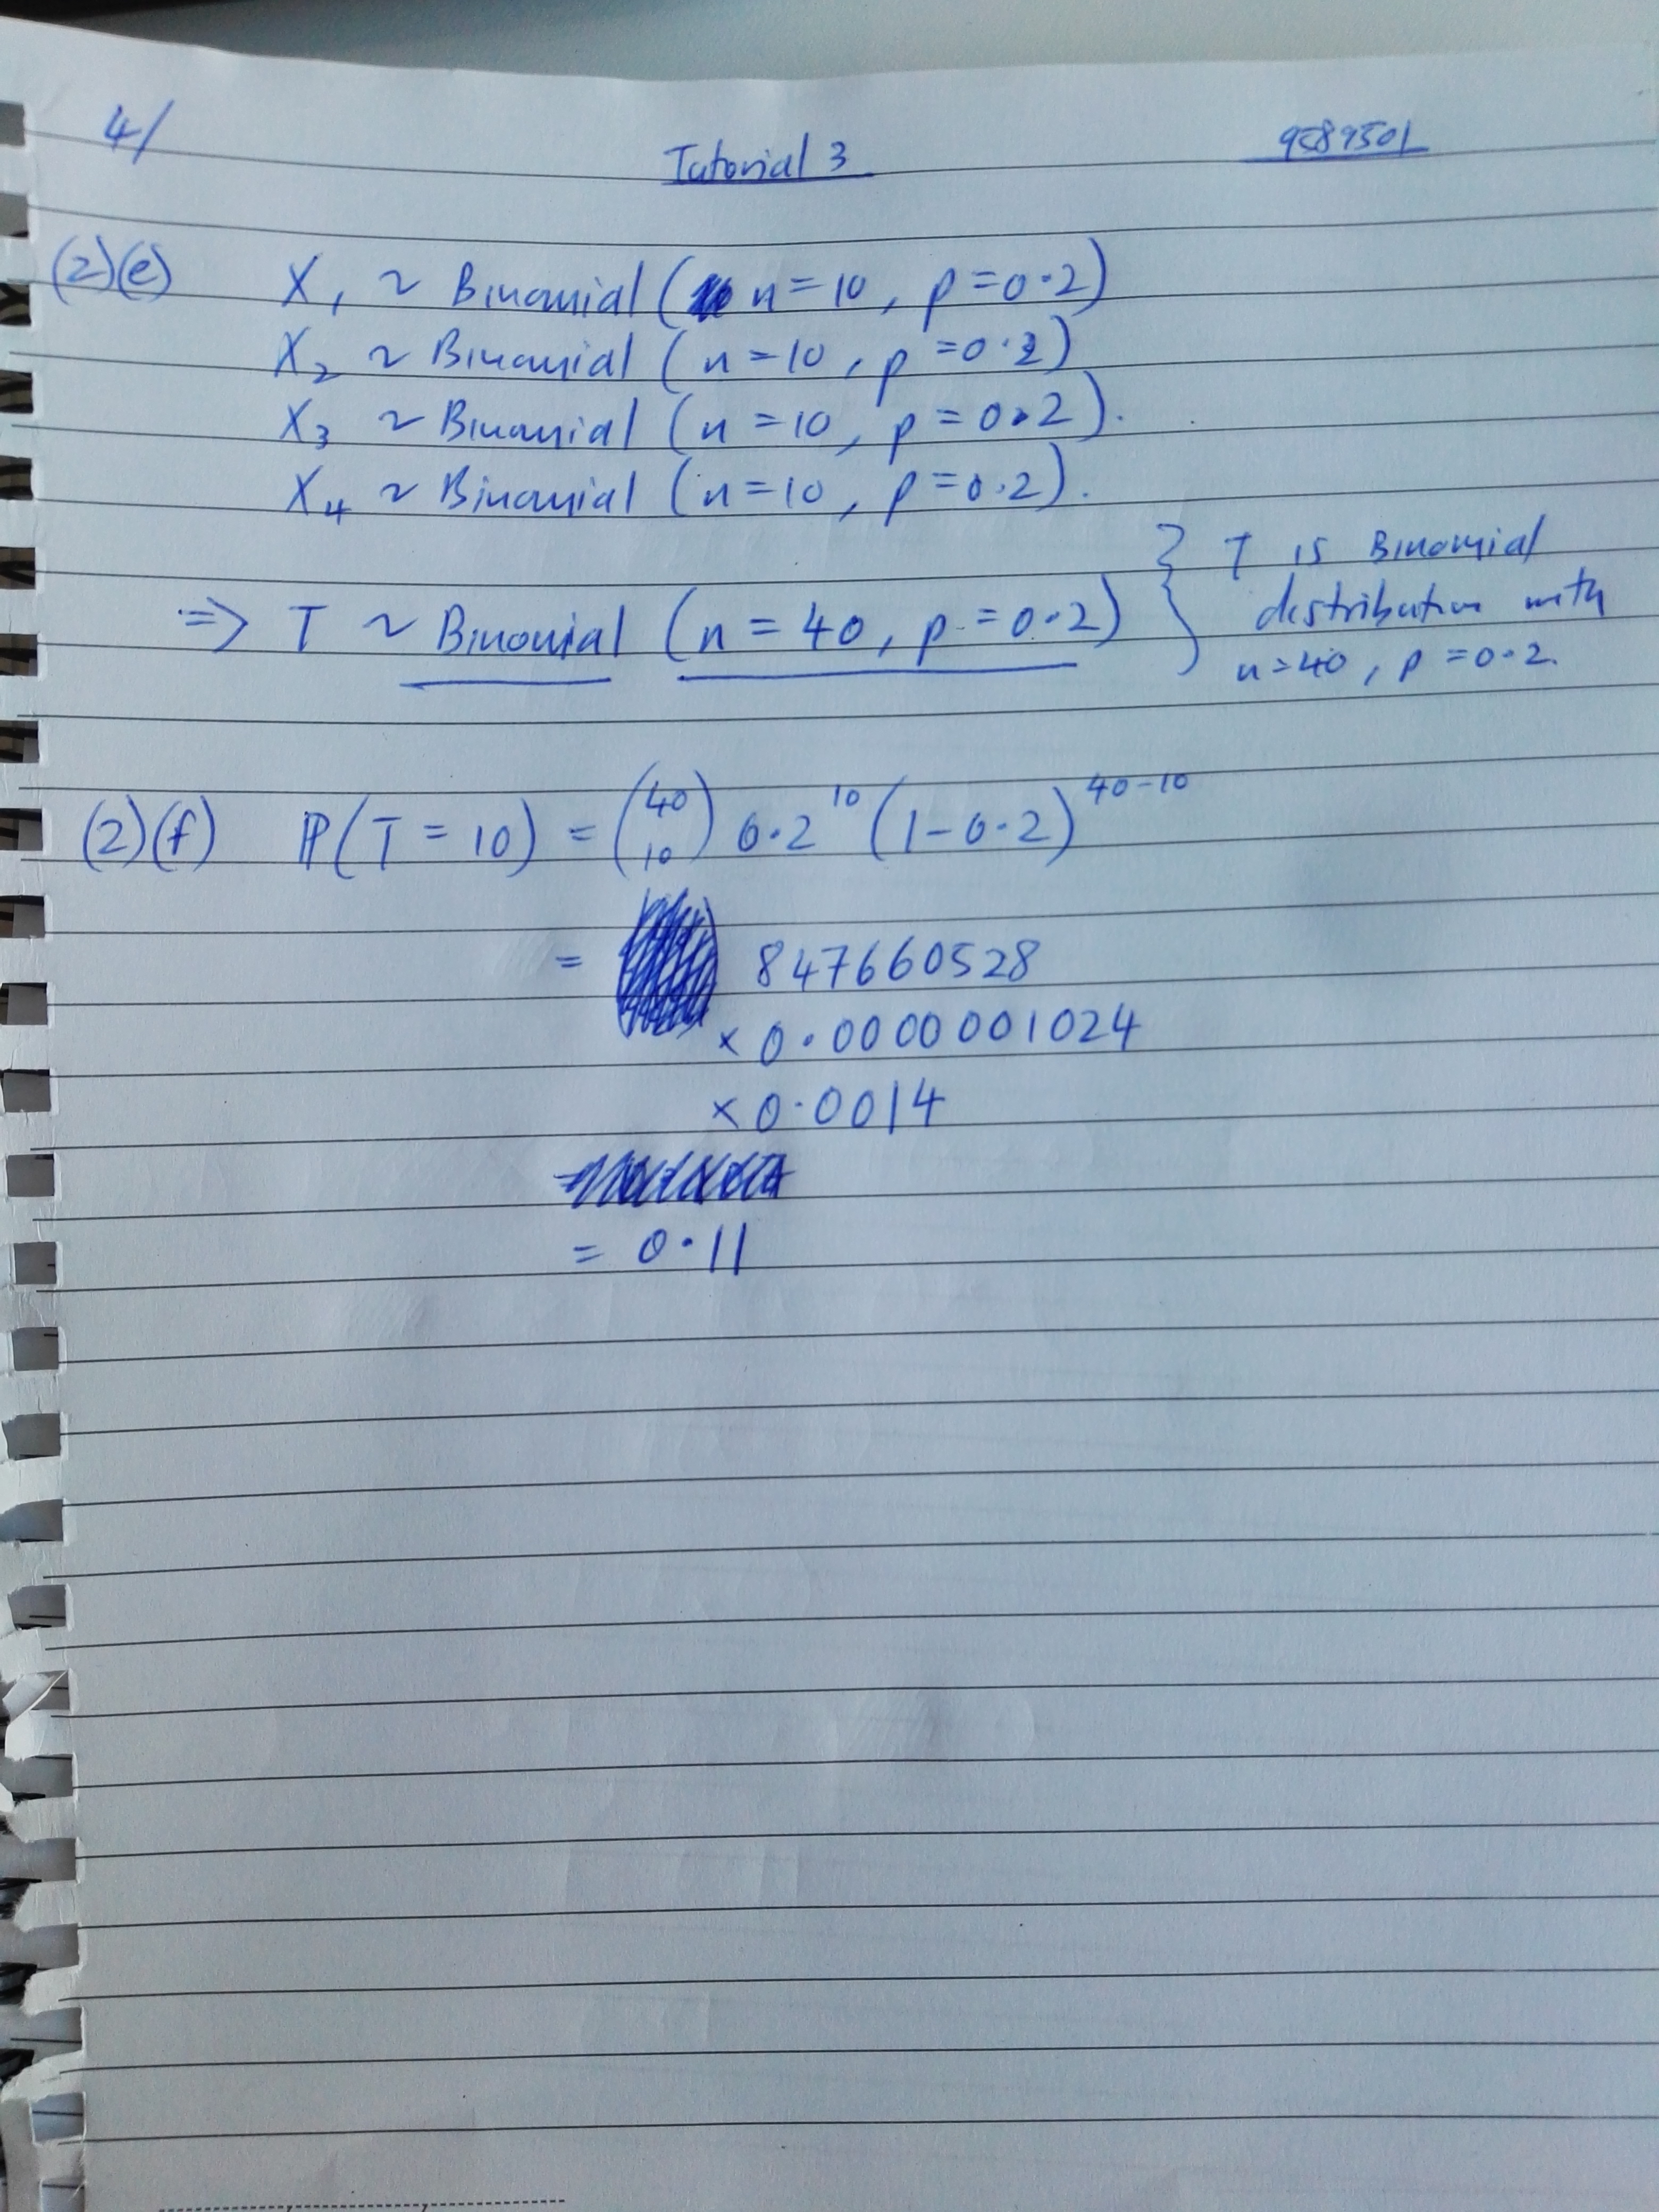 4/
Tutorial 3
9589501
(2)(e) X₁ ~ Binomial (n=10, p=0.2)
X₂ ~ Binomial (n=10, p=0.2)
X₃ ~ Binomial (n=10, p=0.2).
X₄ ~ Binomial (n=10, p=0.2).
⇒ T ~ Binomial (n=40, p=0.2) } T is Binomial
distribution with
n=40, p=0.2.
(2)(f) ℙ(T=10) = (40 10) 0.2^10 (1-0.2)^40-10
= 847660528
× 0.0000001024
× 0.0014
= 0.11